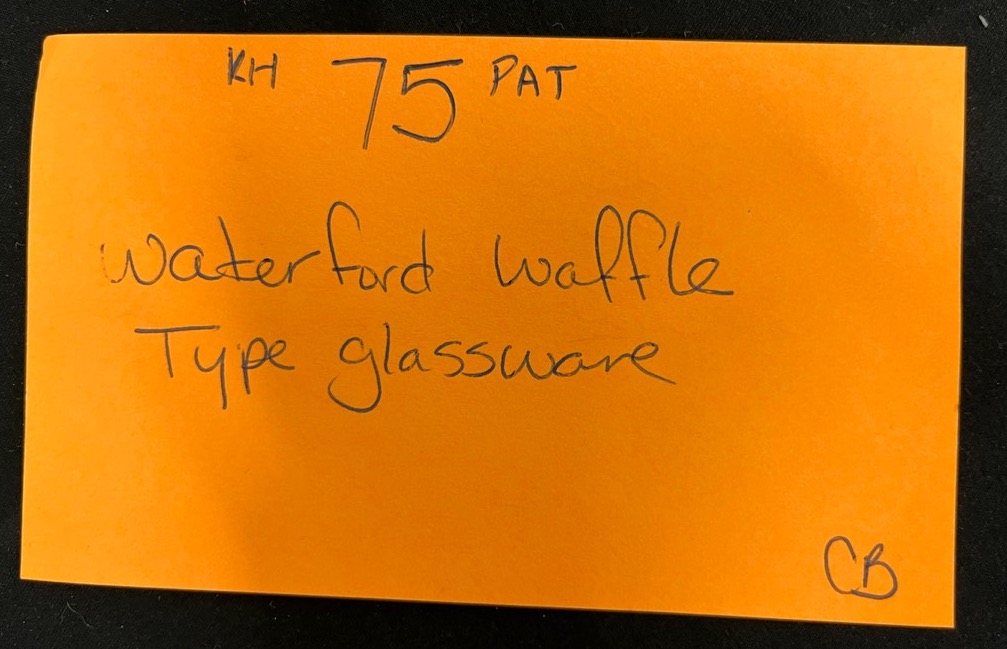 KH 75 PAT
Waterford Waffle
Type glassware
CB